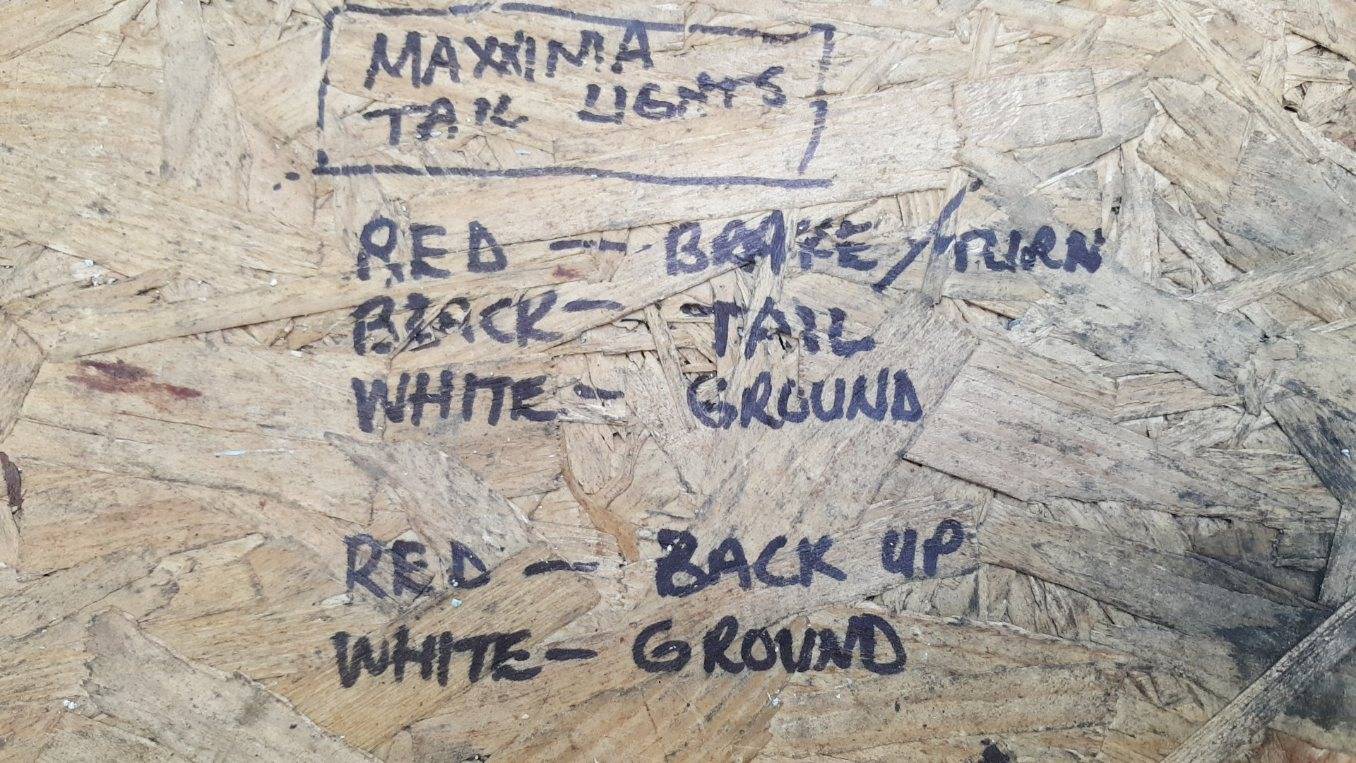 MAXXIMA
TAIL LIGHTS
RED -- BRAKE/TURN
BLACK- TAIL
WHITE - GROUND
RED -- BACK UP
WHITE - GROUND